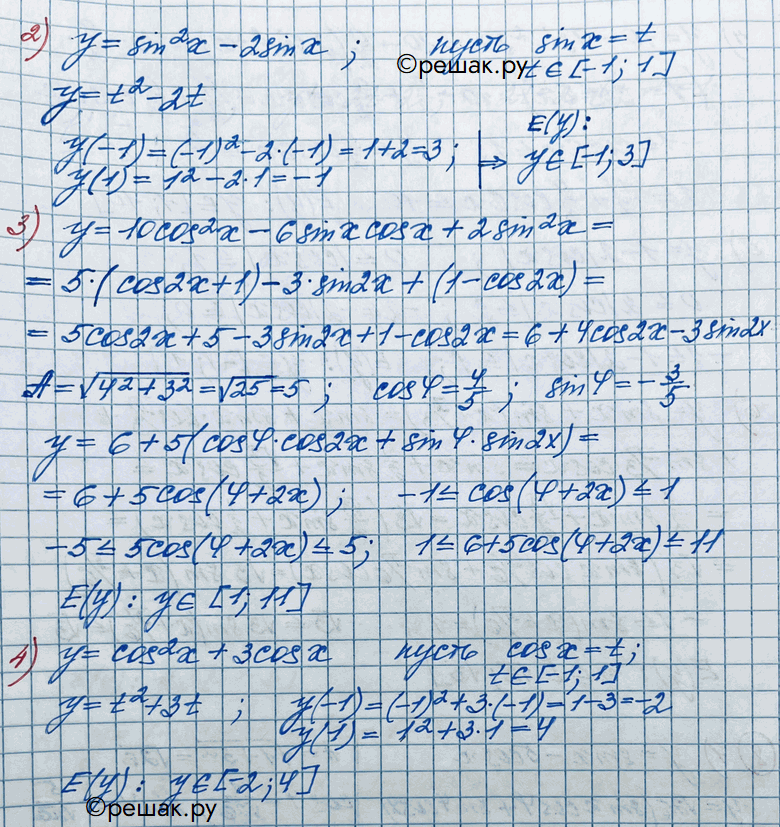 2) y = sin²x − 2sinx ; пусть sinx = t
©решак.ру t ∈ [−1; 1]
y = t² − 2t
y(−1) = (−1)² − 2·(−1) = 1+2 = 3 ; E(y):
y(1) = 1² − 2·1 = −1 ⇒ y ∈ [−1; 3]
3) y = 10cos²x − 6sinxcosx + 2sin²x =
= 5·(cos2x+1) − 3·sin2x + (1−cos2x) =
= 5cos2x + 5 − 3sin2x + 1 − cos2x = 6 + 4cos2x − 3sin2x
A = √(4²+3²) = √25 = 5 ; cosφ = 4/5 ; sinφ = −3/5
y = 6 + 5(cosφ·cos2x + sinφ·sin2x) =
= 6 + 5cos(φ+2x) ; −1 ≤ cos(φ+2x) ≤ 1
−5 ≤ 5cos(φ+2x) ≤ 5; 1 ≤ 6+5cos(φ+2x) ≤ 11
E(y): y ∈ [1; 11]
4) y = cos²x + 3cosx пусть cosx = t;
t ∈ [−1; 1]
y = t² + 3t ; y(−1) = (−1)² + 3·(−1) = 1−3 = −2
y(1) = 1² + 3·1 = 4
E(y): y ∈ [−2; 4]
©решак.ру